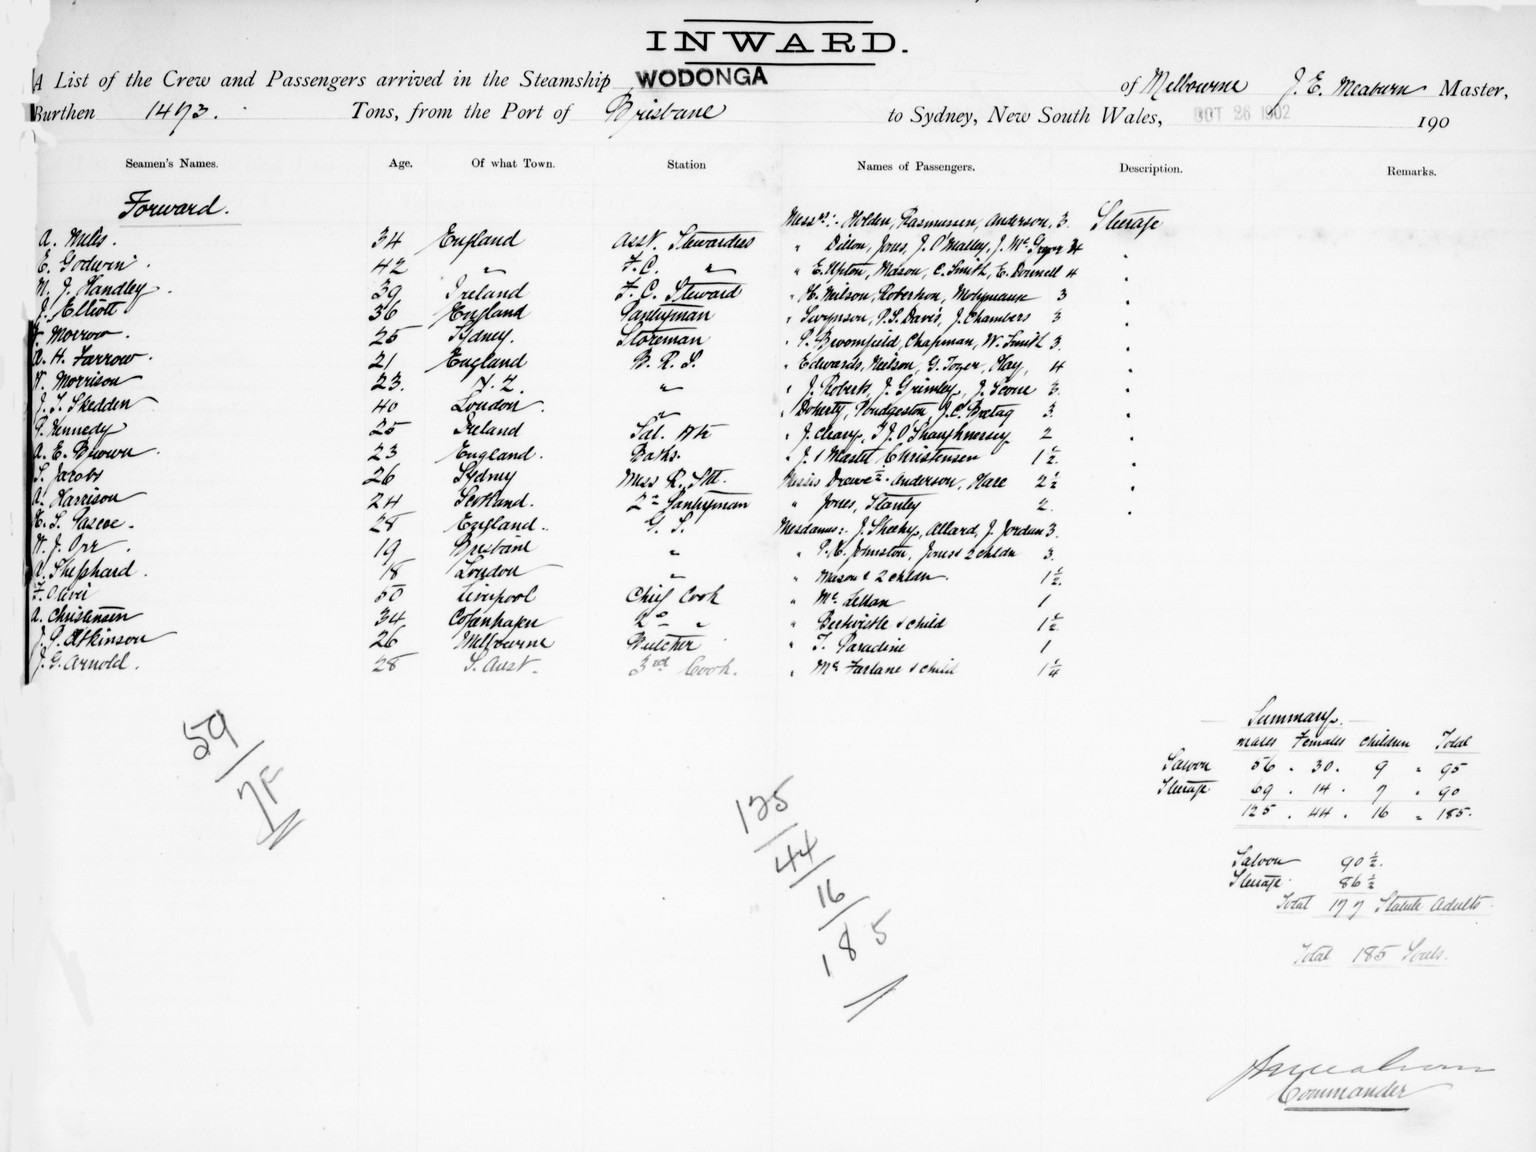 INWARD.
A List of the Crew and Passengers arrived in the Steamship WODONGA of Melbourne J. E. Meaburn Master,
Burthen 1473. Tons, from the Port of Brisbane to Sydney, New South Wales, OCT 26 1902 190
Seamen's Names. Age. Of what Town. Station Names of Passengers. Description. Remarks.
Forward.
Messrs:- Holden, Rasmussen, Anderson, 3. Steerage
A. Mills. 34 England Asst. Stewardess " Dillon, Jones, J. O'Malley, J. McGregor 4 "
E. Godwin. 42 " F. C. " " E. Upton, Mason, C. Smith, E. Donnell 4 "
M. J. Handley. 39 Ireland F. C. Steward " H. Neilson, Robertson, 3 "
J. Elliott 36 England Pantryman " P. S. Davis, J. Chambers 3 "
Morrow. 25 Sydney. Storeman " P. Broomfield, Chapman, W. Smith 3. "
A. H. Farrow. 21 England B. R. S. " Edwards, Neilson, G. Tozer, Hay, 4 "
W. Morrison 23. N. Z. " " J. Roberts, J. Grimley, J. 3. "
J. T. Skedden 40 London. " " Doherty, 3. "
P. Kennedy 25 Ireland Sal. Wtr " J. Cleary, T. J. O'Shaughnessy 2 "
A. E. Brown. 23 England. Baths. " J. & Mastr Christensen 1½. "
S. Jacobs 26 Sydney Mess R. Std. Misses Anderson, Hare 2½ "
A. Harrison 24 Scotland. 2nd Pantryman " Jones, Stanley 2. "
H. S. Pascoe. 28 England.. G. S. Mesdames:- J. Sheehy, Allard, J. Jordan 3.
W. J. Orr. 19 Brisbane " " P. E. Johnston, Jones & 2 chldn 3.
A. Shephard. 18 London " " Mason & 2 chldn. 1½.
F. Oliver 50 Liverpool Chief Cook " McLellan 1
A. Christensen 34 Copenhagen 2nd " " Bertwistle & child 1½
J. G. Atkinson 26 Melbourne Butcher " F. Paradine 1
J. G. Arnold. 28 S. Aust. 3rd Cook. " McFarlane & child 1¼
Summary.
Males Females Children Total
Saloon 56 . 30. 9 . 95
Steerage 69 . 14 . 7 . 90
125 . 44 . 16 . 185.
59
7F
125
44
16
185
Saloon 90½.
Steerage. 86½
Total 177 Statute Adults
Total 185 Souls.
Commander